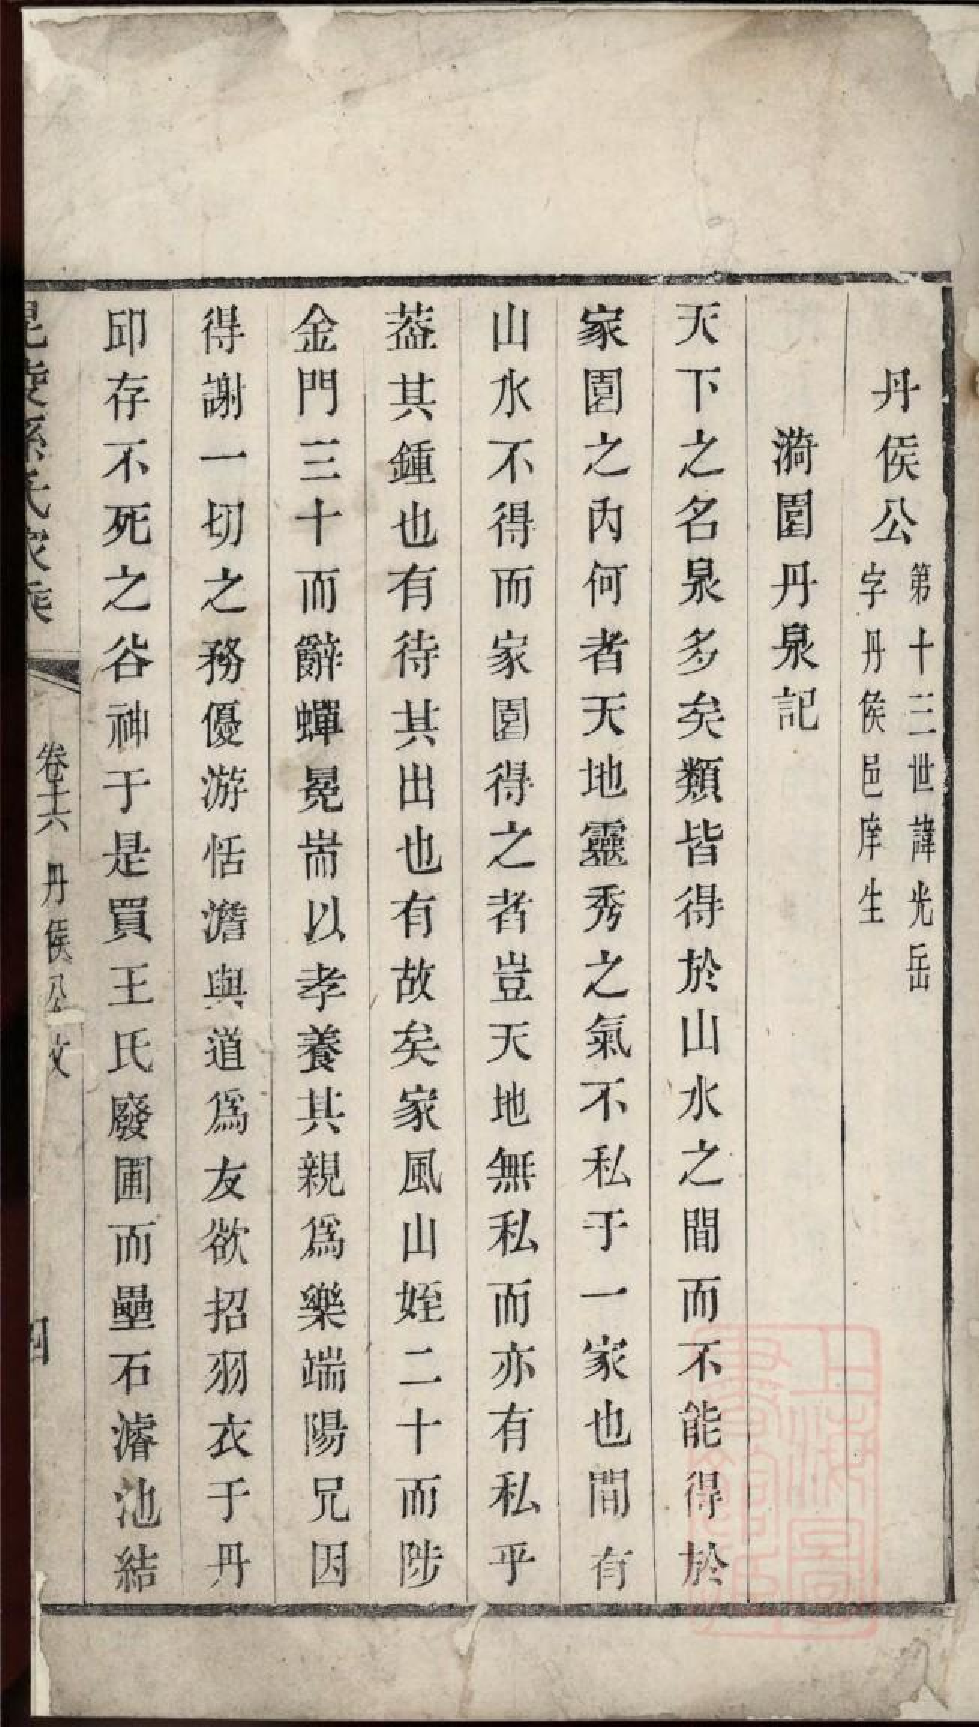 丹侯公
第十三世諱光岳
字丹侯邑庠生
漪園丹泉記
天下之名泉多矣類皆得於山水之間而不能得於
家園之內何者天地靈秀之氣不私于一家也間有
山水不得而家園得之者豈天地無私而亦有私乎
葢其鍾也有待其出也有故矣家風山姪二十而陟
金門三十而辭蟬冕耑以孝養其親爲樂端陽兄因
得謝一切之務優游恬澹與道爲友欲招羽衣于丹
邱存不死之谷神于是買王氏廢圃而壘石濬池結
毘陵孫氏家乘
卷十六
丹侯公文
四